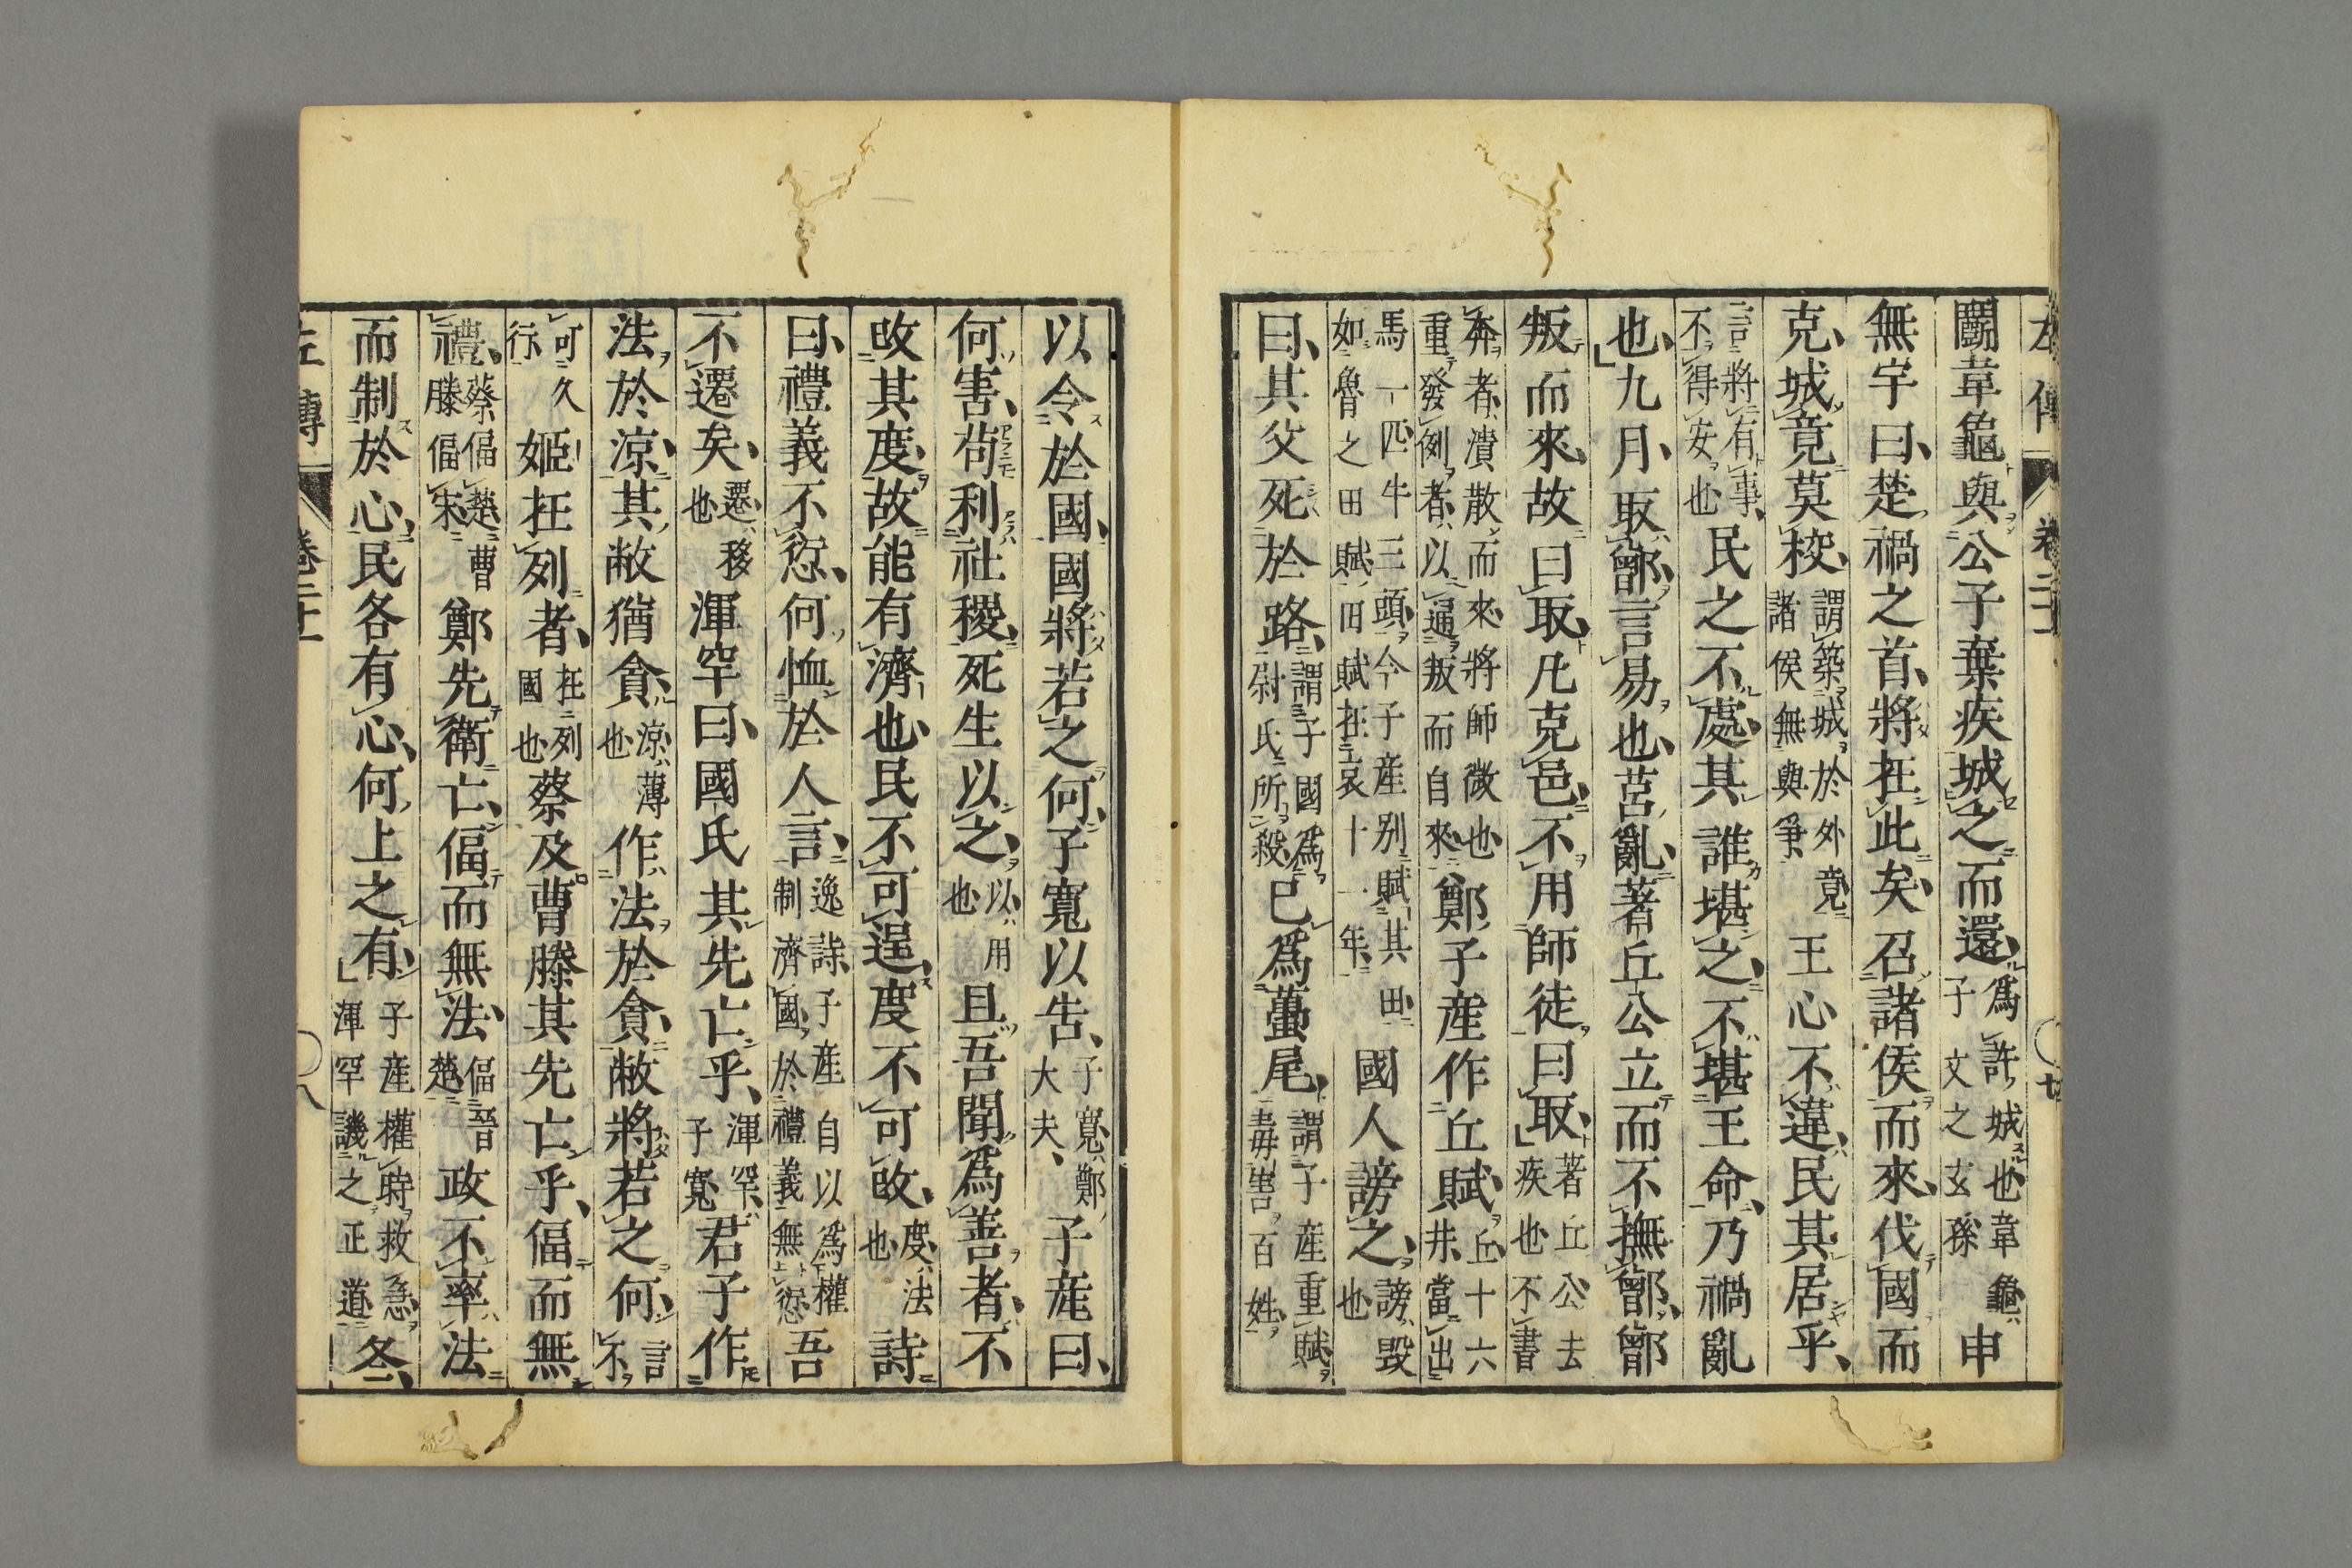 左傳 卷二十一
鬬韋龜與公子棄疾城之而還、爲許城也韋龜、子文之玄孫申
無宇曰、楚禍之首、將在此矣、召諸侯而來、伐國而
克、城竟莫挍、謂築城於外竟、諸侯無與爭、王心不違、民其居乎、
言將有事、不得安也民之不處、其誰堪之、不堪王命、乃禍亂
也、九月、取鄫、言易也、莒亂、著丘公立而不撫鄫、鄫
叛而來、故曰取、凡克邑、不用師徒、曰取、著丘公去疾也不書
奔者、潰散而來、將師微也、重發例者、以通叛而自來、鄭子産作丘賦、丘十六井、當出
馬一匹牛三頭、今子産別賦其田、如魯之田賦、田賦在哀十一年、國人謗之、謗毀也
曰、其父死於路、謂子國爲尉氏所殺、已爲蠆尾、謂子産重賦毒害百姓、
以令於國、國將若之何、子寬以告、子寬、鄭大夫、子産曰、
何害、苟利社稷、死生以之、以、用也且吾聞爲善者、不
改其度、故能有濟也、民不可逞、度不可改、度、法也詩
曰、禮義不愆、何恤於人言、逸詩、子産自以爲權制濟國、於禮義無愆吾
不遷矣、遷、移也渾罕曰、國氏其先亡乎、渾罕、子寬君子作
法於涼、其敝猶貪、涼、薄也作法於貪、敝將若之何、言不
可久行姬在列者、在列國也蔡及曹滕其先亡乎、偪而無
禮、蔡偪楚曹滕偪宋鄭先衛亡、偪而無法、偪晉楚政不率法
而制於心、民各有心、何上之有、子産權時救急、渾罕譏之正道冬、
左傳 卷二十一 八